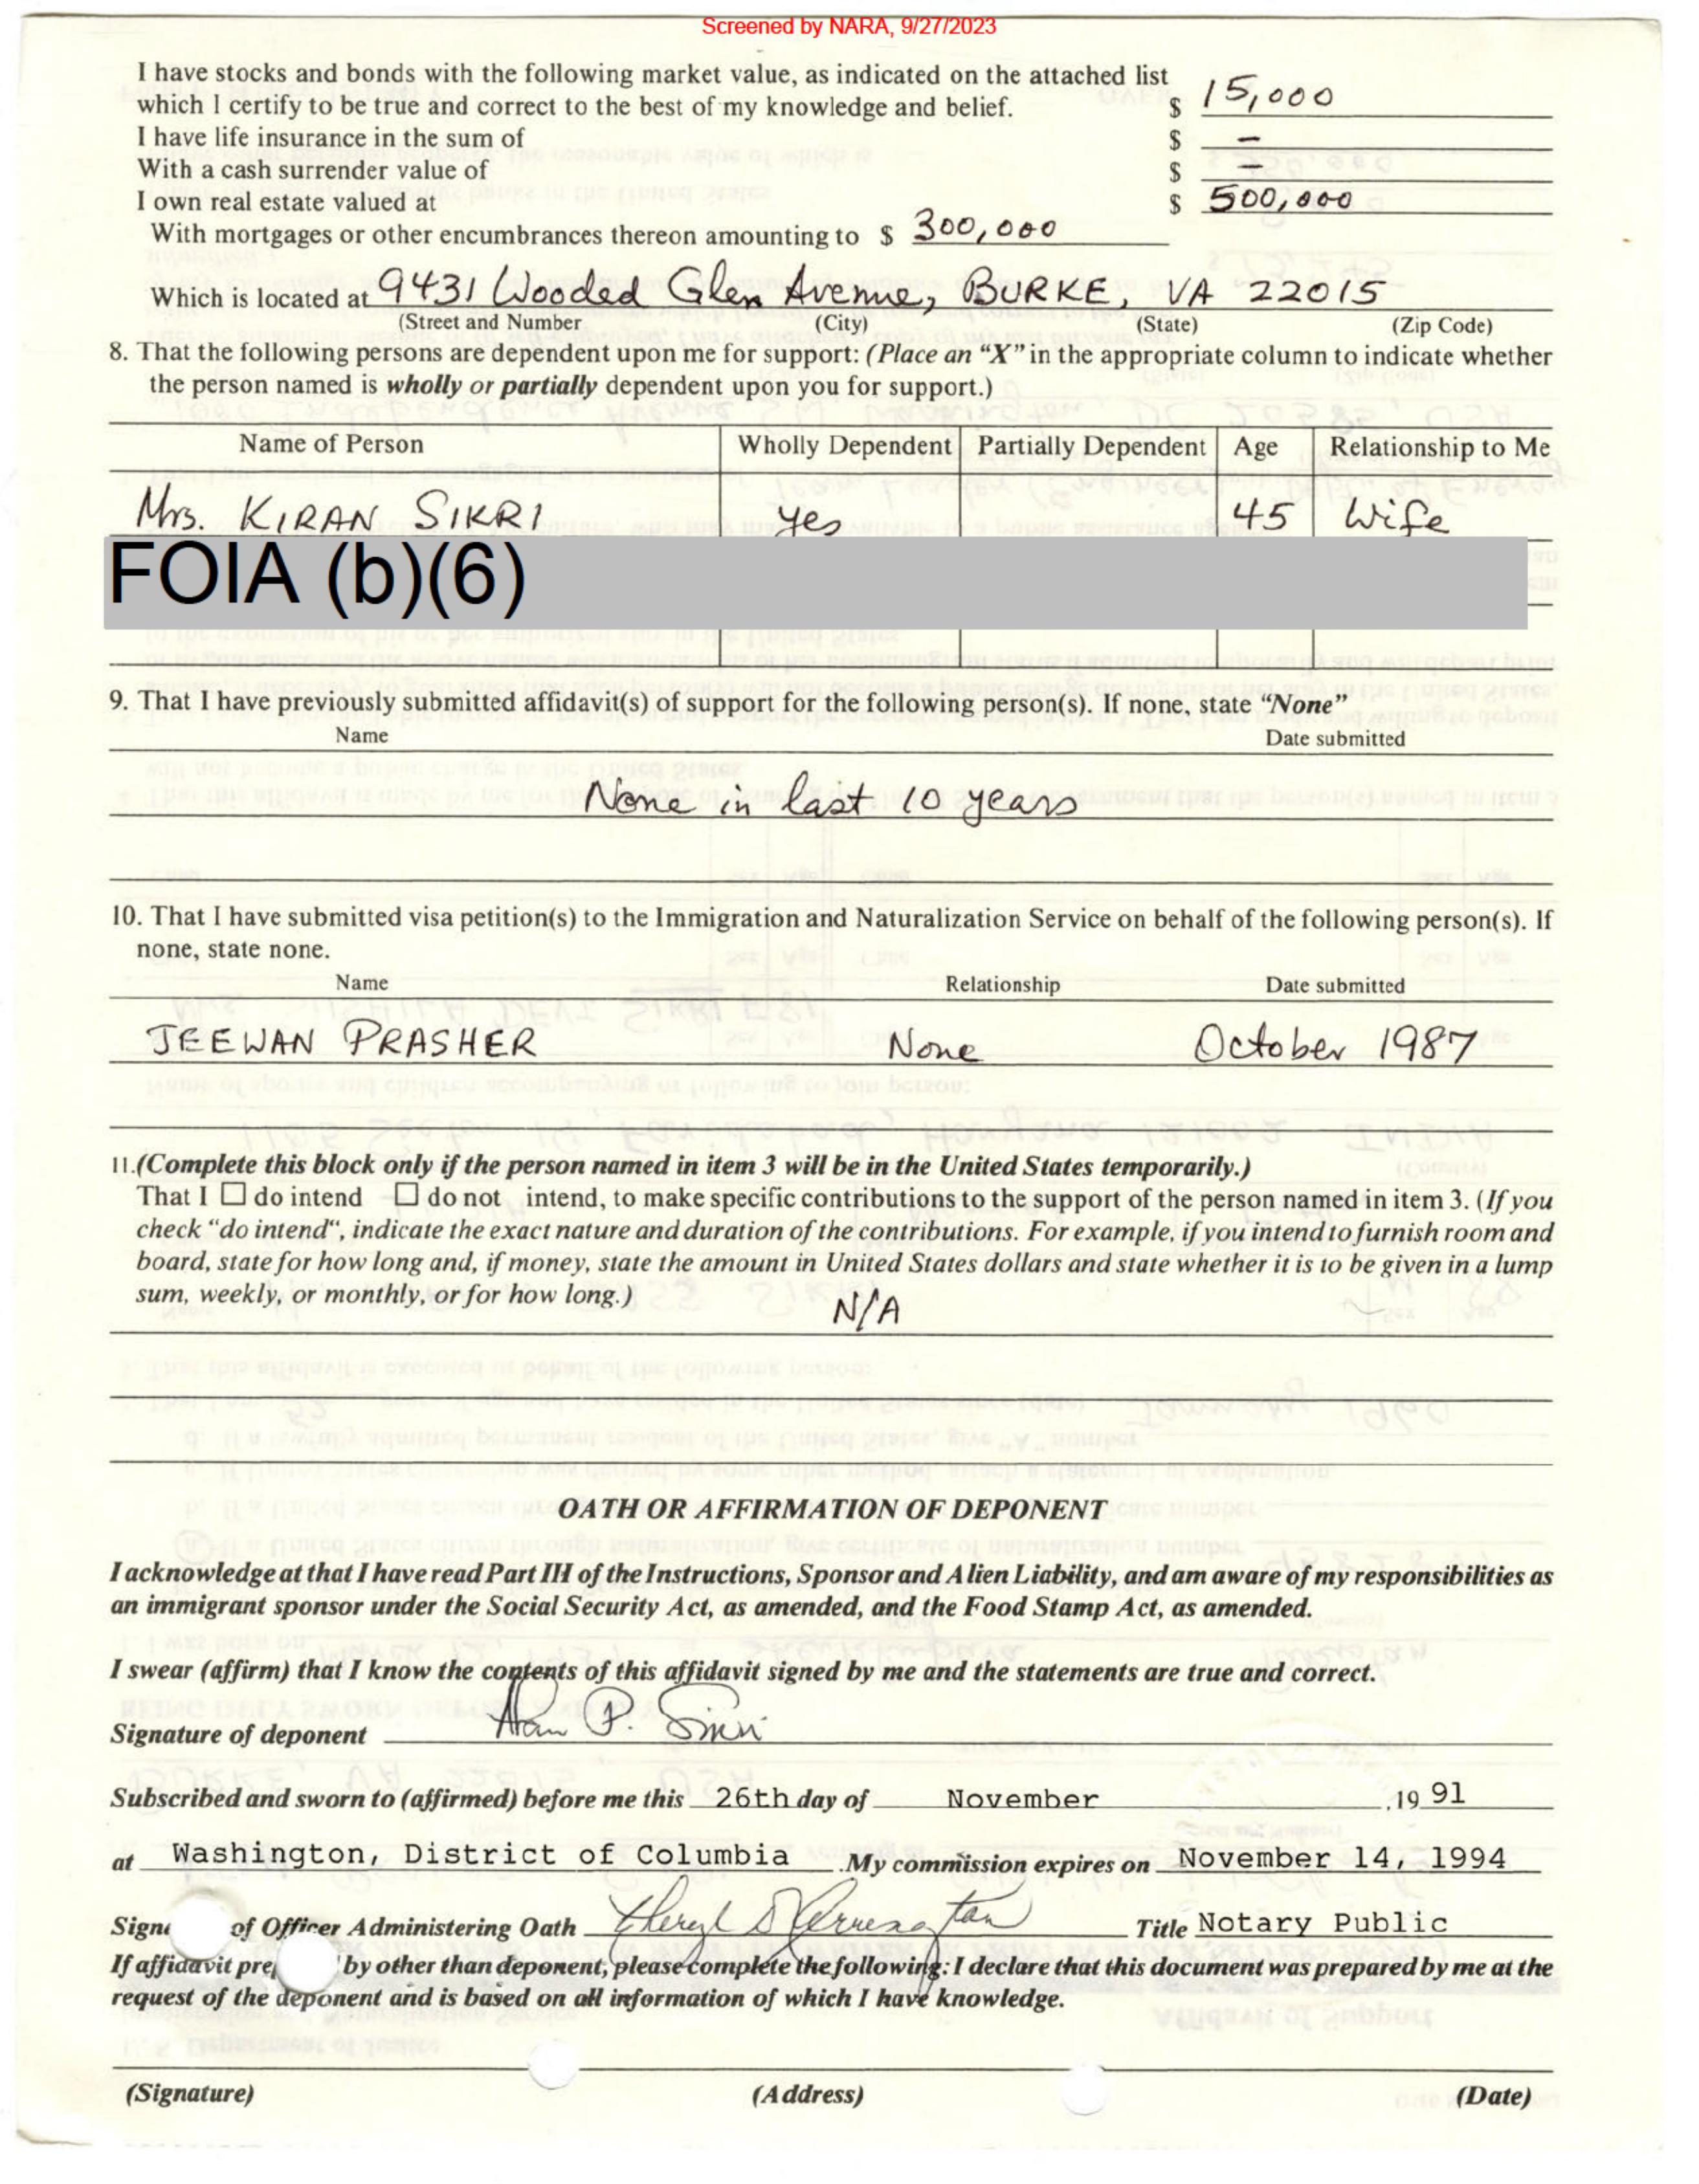 Screened by NARA, 9/27/2023
I have stocks and bonds with the following market value, as indicated on the attached list
which I certify to be true and correct to the best of my knowledge and belief. $ 15,000
I have life insurance in the sum of $ –
With a cash surrender value of $ –
I own real estate valued at $ 500,000
With mortgages or other encumbrances thereon amounting to $ 300,000
Which is located at 9431 Wooded Glen Avenue, BURKE, VA 22015
(Street and Number (City) (State) (Zip Code)
8. That the following persons are dependent upon me for support: (Place an “X” in the appropriate column to indicate whether
the person named is wholly or partially dependent upon you for support.)
Name of Person Wholly Dependent Partially Dependent Age Relationship to Me
Mrs. KIRAN SIKRI yes 45 Wife
FOIA (b)(6)
9. That I have previously submitted affidavit(s) of support for the following person(s). If none, state “None”
Name Date submitted
None in last 10 years
10. That I have submitted visa petition(s) to the Immigration and Naturalization Service on behalf of the following person(s). If
none, state none.
Name Relationship Date submitted
JEEWAN PRASHER None October 1987
11.(Complete this block only if the person named in item 3 will be in the United States temporarily.)
That I ☐ do intend ☐ do not intend, to make specific contributions to the support of the person named in item 3. (If you
check “do intend“, indicate the exact nature and duration of the contributions. For example, if you intend to furnish room and
board, state for how long and, if money, state the amount in United States dollars and state whether it is to be given in a lump
sum, weekly, or monthly, or for how long.)
N/A
OATH OR AFFIRMATION OF DEPONENT
I acknowledge at that I have read Part III of the Instructions, Sponsor and Alien Liability, and am aware of my responsibilities as
an immigrant sponsor under the Social Security Act, as amended, and the Food Stamp Act, as amended.
I swear (affirm) that I know the contents of this affidavit signed by me and the statements are true and correct.
Signature of deponent P. Sikri
Subscribed and sworn to (affirmed) before me this 26th day of November ,19 91
at Washington, District of Columbia .My commission expires on November 14, 1994
Sign of Officer Administering Oath Title Notary Public
If affidavit prep by other than deponent, please complete the following: I declare that this document was prepared by me at the
request of the deponent and is based on all information of which I have knowledge.
(Signature) (Address) (Date)